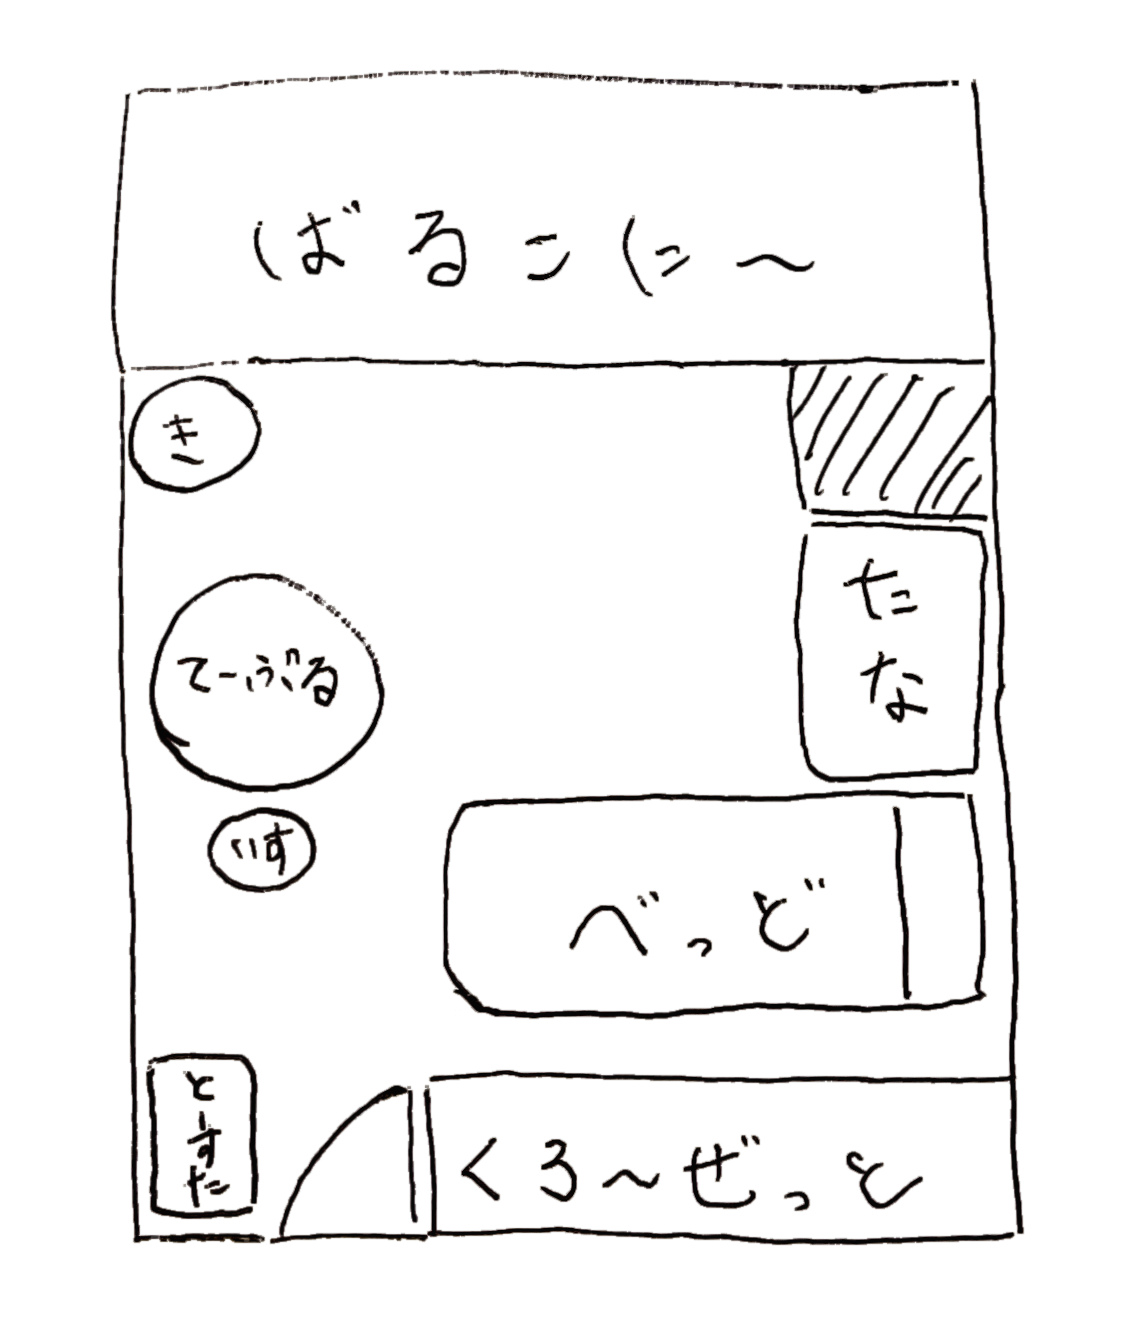 ばるこに〜
き
たな
てーぶる
いす
べっど
とーすた
くろ〜ぜっと